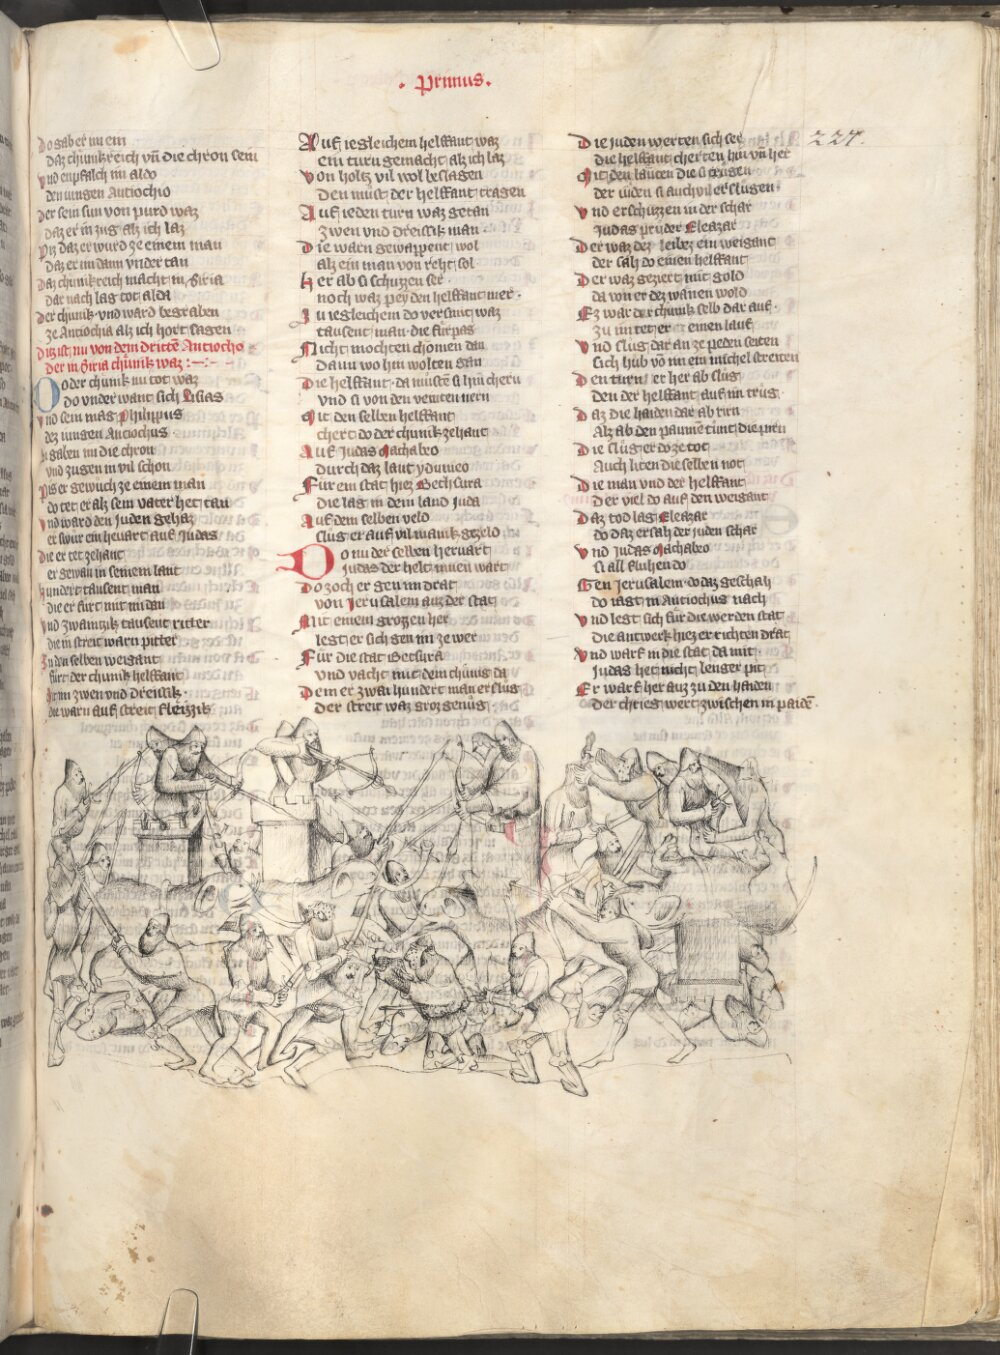 · Primus ·
227.
Do gab er im ein
daz chunkreich vn̄ die chron sein
vnd enpfalch im aldo
den iungen Antiochio
Der sein sun von purd waz
daz er in zug alz ich laz
Piz daz er wurd ze einem man
daz er im dann vnder tan
Daz chunkreich macht in Siria
dar nach lag tot alda
Der chunk vnd ward begraben
ze Antiochia alz ich hort sagen
Ditz ist nu von dem dritte᷑ Antiocho
der in Siria chunik waz
Do der chunk nu tot waz
do vnder want sich Lisias
vnd sein mag Philippus
dez iungen Antiochus
si gaben im die chron
vnd zugen in vil schon
Pis er gewuch ze einem man
do tet er alz sein vater het tan
vnd ward den Juden gehaz
er swur ein heuart auf Judas
die er tet zehant
er gewan in seinem lant
hundert tausent man
die er furt mit im dan
vnd zwaintzik tausent ritter
die in streit warn pitter
In den selben weigant
furt der chunik helffant
mit im zwen vnd dreissik
die warn auf streit fleizzik
Auf iegleichem helffant waz
ein turn gemacht alz ich laz
von holtz vil wol beslagen
Den must der helffant tragen
Auf ieden turn waz getan
zwen vnd dreissik man
Die warn gewappent wol
alz ein man von reht sol
her ab si schuzzen ser
noch waz pey den helffant mer
Zu iegleichem do versunt waz
tausent man die fürpas
Nicht mochten chomen dan
dann wo hin wolten gan
Die helffant da musten si hin chern
vnd si von den veinten nern
Mit den selben helffant
chert do der chunik zehant
Auf Judas Machabeo
durch daz laut ydumeo
Für ein stat hiez Bethsura
die lag in dem land Juda
Auf dem selben veld
slug er auf vil manik gezeld
Do nu der selben heruart
Judas der helt innen wart
Do zoch er gen im drat
von Jerusalem auz der stat
Mit einem grozzen her
legt er sich gen im ze wer
Für die stat Betsura
vnd vacht mit dem chünig da
Dem er zwar hundert man erslug
der streit waz groz genüg
Die juden werten sich ser
die helffant cherten hin vn̄ her
Mit den lauten die si trugen
der iuden si auch vil erslugen
vnd erschuzzen in der schar
Judas pruder Eleazar
Der waz dez leibez ein weigant
der sah do einen helffant
Der waz geziert mit gold
da von er dez wanen wold
Ez war der chunik selb dar auf
zu im tet er einen lauf
vnd slug dar an ze peden seiten
sich hub vo im ein michel streiten
Den turn er her ab slug
den der helffant auf im trug
Daz die haiden dar ab rirn
Alz ab den paumen tunt die pirn
Die slug er do ze tot
Auch liten die selben not
Die man vnd der helffant
der viel do auf den weigant
Daz tod lag Eleazar
do daz ersah der iuden schar
vnd Judas Machabeo
si all fluhen do
Gen Jerusalem do daz geschah
do iagt in Antiochus nach
vnd legt sich für die werden stat
die antwerk hiez er richten drat
vnd warf in die stat da mit
Judas het nicht lenger pit
Er warf her auz zu den haiden
der chrieg wert zwischen in paide᷑